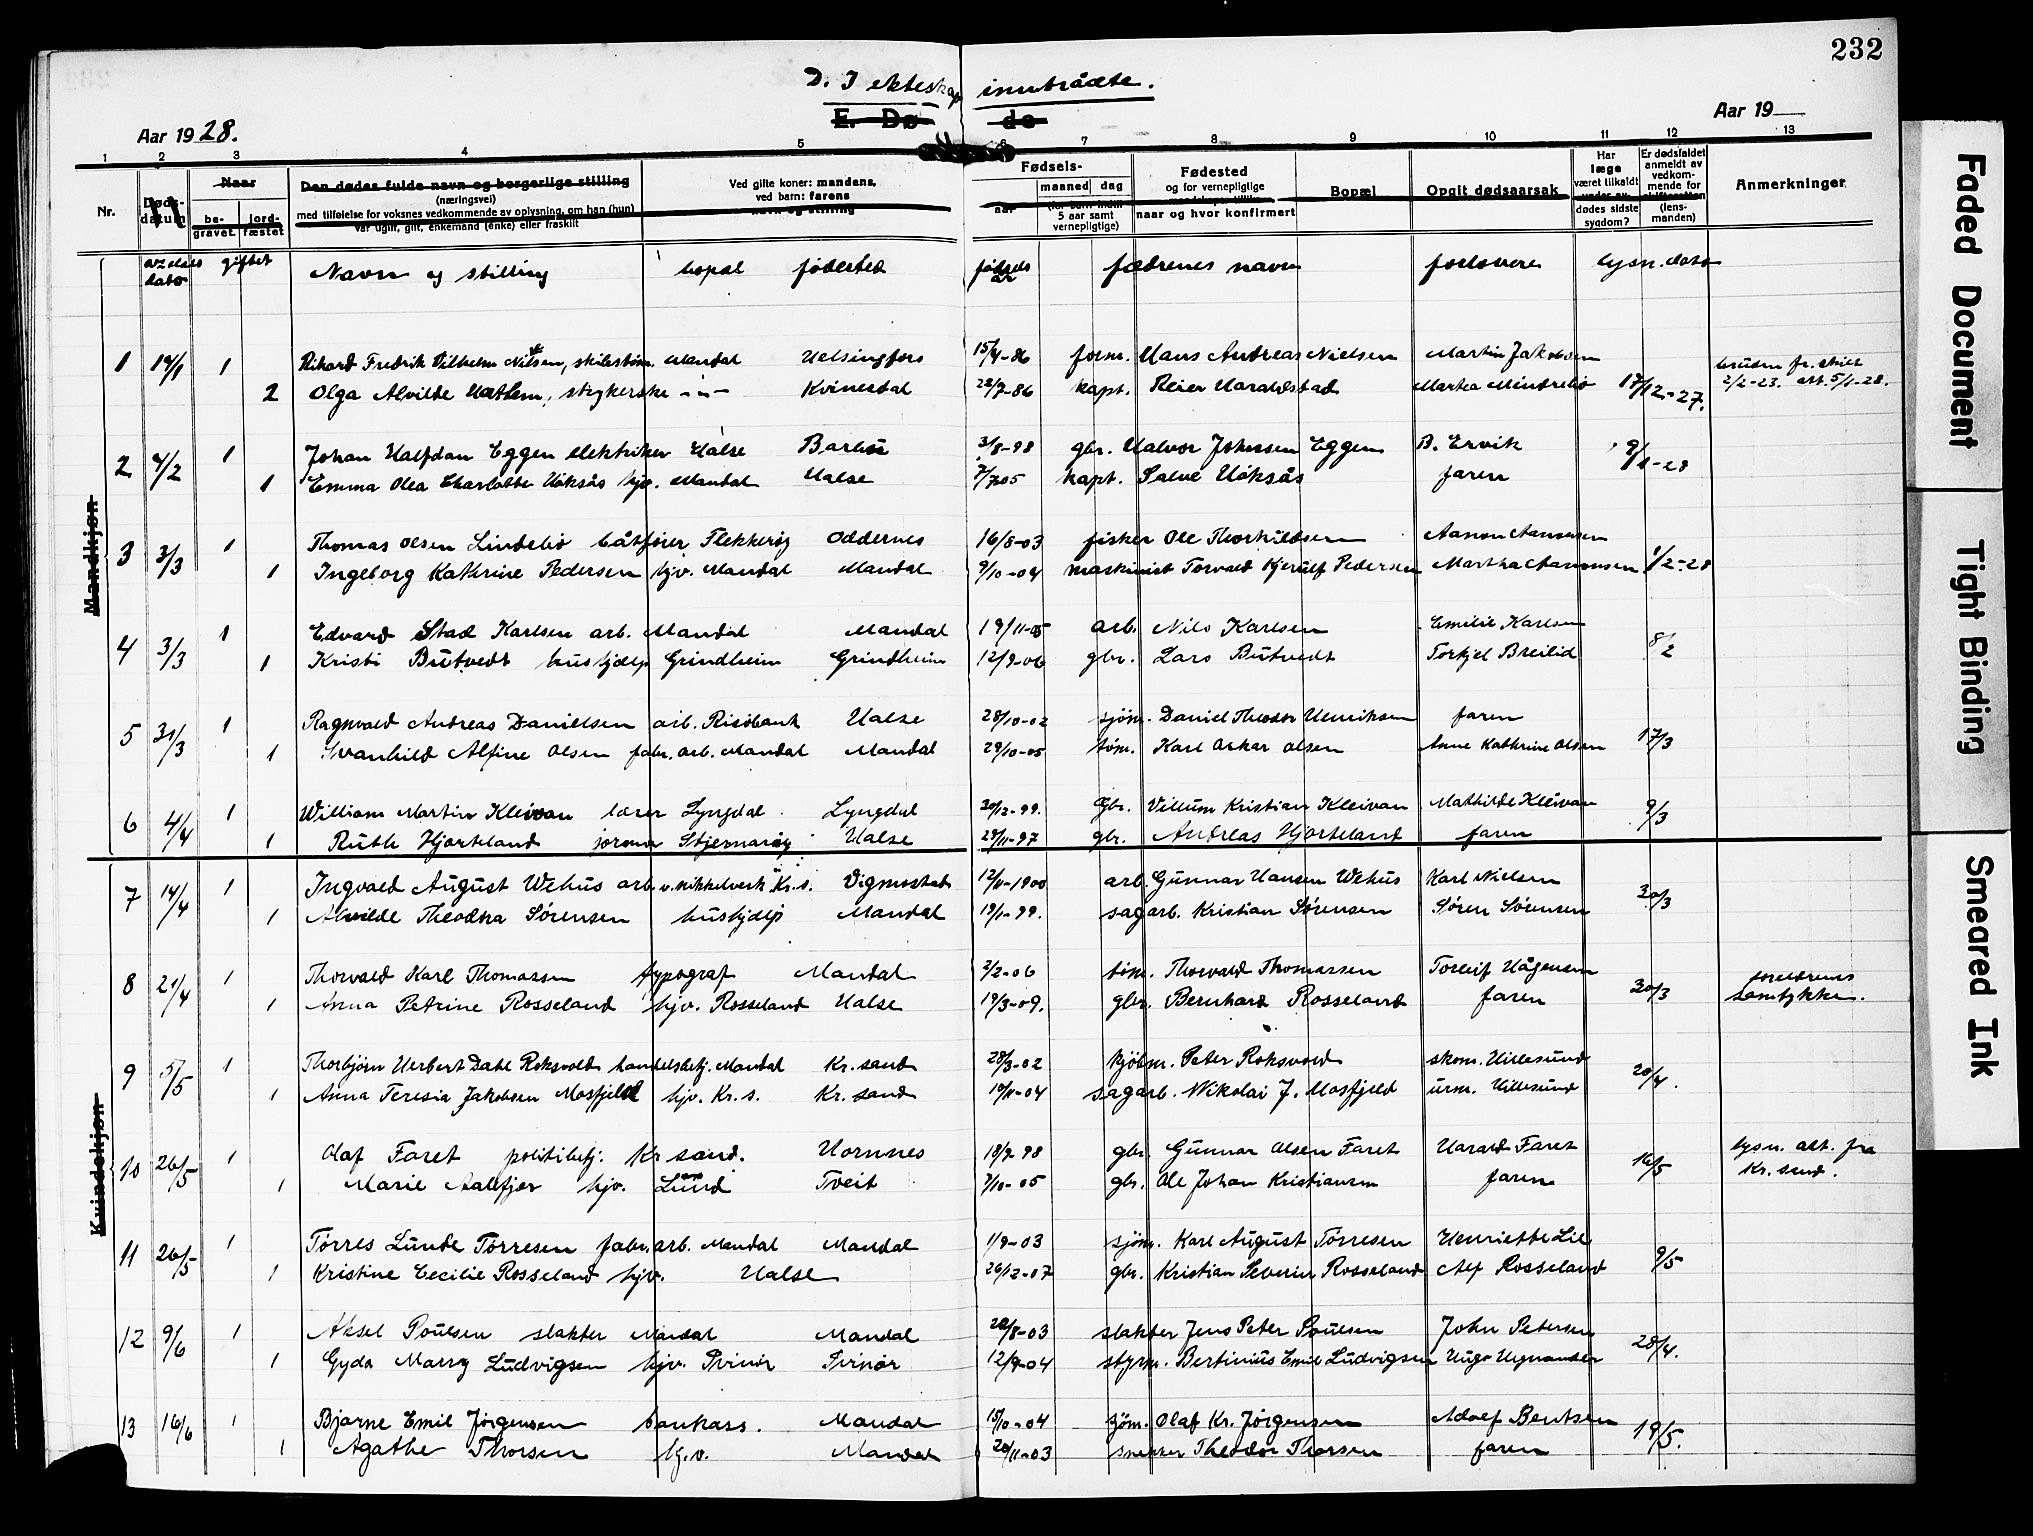 232
D. I ekteskap inntrådte.
E. Døde
Aar 1928.
Aar 19
1 2 3 4 5 6 7 8 9 10 11 12 13
Nr.
Døds-datum
Naar
be-gravet.
jord-fæstet
Den dødes fulde navn og borgerlige stilling
(næringsvei)
med tilføielse for voksnes vedkommende av oplysning, om han (hun)
var ugift, gift, enkemand (enke) eller fraskilt
Ved gifte koner: mandens,
ved barn: farens
navn og stilling
Fødsels-
aar
maaned dag
(for barn indtil 5 aar samt vernepligtige)
Fødested
og for vernepligtige
naar og hvor konfirmert
Bopæl
Opgit dødsaarsak
Har læge været tilkaldt
dødes sidste sygdom?
Er dødsfaldet anmeldt av vedkommende for
(lensmanden)
Anmerkninger
dato giftet Navn og stilling bopæl fødested fødsels år fædrenes navn forlovere lysn. dato
Mandkjøn
1 14/1 1 Rikard Fredrik Vilhelm Nilsen, Mandal Helsingfors 15/4-86 form. Hans Andreas Nielsen Martin Jakobsen bruden fr. skilt
2 Olga Alvilde Hatlem, strykerske -"- Kvinesdal 28/7-86 kapt. Reier Haraldstad Martha Mindrebø 17/12-27. 2/2-23. att. 5/1-28.
2 4/2 1 Johan Halfdan Eggen elektriker Halse Barbu 3/8-98 gbr. Halvor Johnssen Eggen B. Ervik
1 Emma Olea Charlotte Uoksås hjv. Mandal Halse 7/7 05 kapt. Salve Uoksås faren
3 3/3 1 Thomas Olsen Lindebø båtfører Flekkerøy Oddernes 16/8-03 fisker Ole Thorkildsen Aanon Aanonsen
1 Ingeborg Kathrine Pedersen hjv. Mandal Mandal 9/10-04 maskinist Torvald Kjerulf Pedersen Martha Aanonsen 1/2-28
4 3/3 1 Edvard Stad Karlsen arb. Mandal Mandal 19/11-05 arb. Nils Karlsen Emilie Karlsen
1 Kristi Butvedt hushjælp Grindheim Grindheim 12/9-06 gbr. Lars Butvedt Torkjel Breilid 8/2
5 31/3 1 Ragnvald Andreas Danielsen arb. Risøbank Halse 28/10-02 sjøm. Daniel Theodor Henriksen faren
1 Svanhild Alfine Olsen fabr. arb. Mandal Mandal 29/10-05 tøm. Karl Oskar Olsen Anne Kathrine Olsen 17/3
6 4/4 1 William Martin Kleivan lærer Lyngdal Lyngdal 30/12-99. Gbr. Villum Kristian Kleivan Mathilde Kleivan
1 Ruth Hjorteland jormor Stjernarøy Halse 29/11-97 gbr. Andreas Hjorteland faren 9/3
Kvindekjøn
7 14/4 1 Ingvald August Wehus arb. v. nikkelverk Kr.s. Vigmostad 12/11-1900 arb. Gunnar Hansen Wehus Karl Nielsen
1 Alvilde Theodora Sørensen hushjælp Mandal 19/1-99. sagarb. Kristian Sørensen Søren Sørensen 30/3
8 21/4 1 Thorvald Karl Thomassen typograf Mandal 2/2-06 tøm. Thorvald Thomassen Torleif Hågensen foreldrenes
1 Anna Petrine Rosseland hjv. Rosseland Halse 19/3-09. gbr. Bernhard Rosseland faren 30/3 samtykke.
9 5/5 1 Thorbjørn Herbert Dahl Roksvold handelsbetj. Mandal Kr. sand 28/3-02 kjøbm. Peter Roksvold skom. Hillesund
1 Anna Teresia Jakobsen Mosfjeld hjv. Kr.s. Kr. sand 10/11-04 sagarb. Nikolai J. Mosfjeld urm. Hillesund 20/4.
10 26/5 1 Olaf Faret politibetj. Kr sand. Hornnes 18/9 98 gbr. Gunnar Olsen Faret Harald Faret lysn. att. fra
1 Marie Aalefjær hjv. Lund Tveit 7/10-05 gbr. Ole Johan Kristiansen faren 16/5 Kr. sand.
11 26/5 1 Tørres Lunde Tørresen fabr. arb. Mandal Mandal 1/9-03 sjøm. Karl August Tørresen Henriette Lie
1 Kristine Cecilie Rosseland hjv. Halse 26/12-07 gbr. Kristian Severin Rosseland Alf Rosseland 9/5
12 9/6 1 Aksel Poulsen slakter Mandal Mandal 28/8-03 slakter Jens Peter Poulsen John Petersen
1 Gyda Marry Ludvigsen hjv. Svinør Svinør 12/9-04 styrm. Bertinius Emil Ludvigsen Hugo 28/4.
13 16/6 1 Bjarne Emil Jørgensen bankass. Mandal 15/10-04 sjøm. Olaf Kr. Jørgensen Adolf Bentsen
1 Agathe Thorsen hj.v. Mandal 20/11-03 snekker Theodor Thorsen faren 19/5.
Faded Document
Tight Binding
Smeared Ink